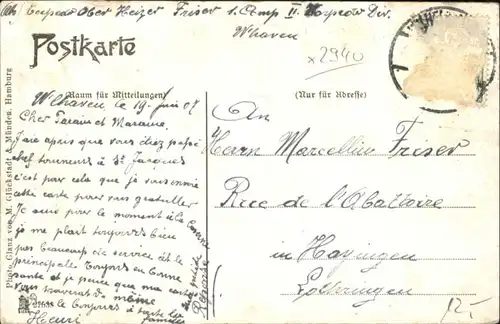 Ober Heizer Friser 1. Comp II
Whaven
Postkarte
x2940
(Raum für Mitteilungen)
(Nur für Adresse)
Wlhaven le 19 Juin 07
Cher Parain et Maraine
J'aie apris que vous étiez passé
chef tourneurs à St Jacques
c'est pour cela que je vous envoie
cette carte pour vous gratuller
Je suis pour le moment à la
je me plait toujours bien
pas beaucoup de service et le
principale toujours en bonne
santé et je pense que ma carte
vous trouveras de même
le bonjours à toute la
famille
Henri
Réponse
An
Herrn Marcellin Friser
Rue de l'Abattoire
in Hayingen
Lothringen
12.-
Photo-Glanz von M. Glückstadt & Münden, Hamburg